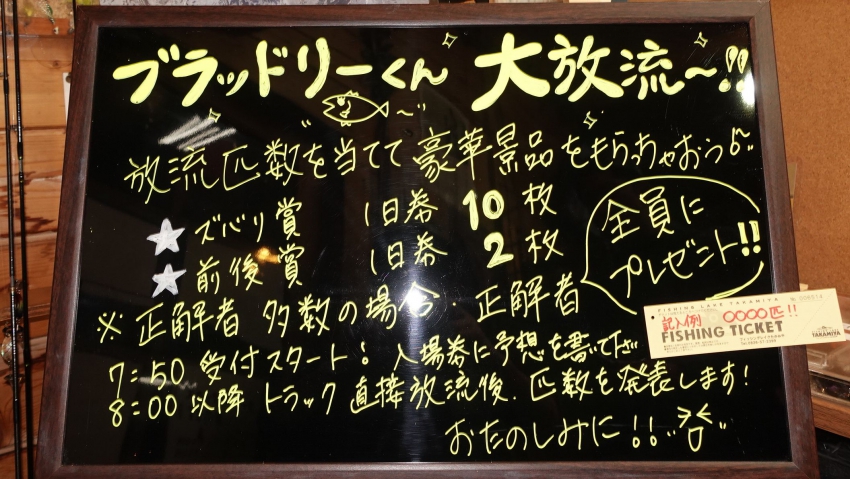 ブラッドリーくん 大放流〜!!
放流匹数を当てて豪華景品をもらっちゃおう♪
★ ズバリ賞 1日券 10枚
★ 前後賞 1日券 2枚
全員に
プレゼント!!
※正解者 多数の場合・正解者
7:50 受付スタート! 入場券に予想を書いて下さ
8:00 以降 トラック直接放流後、匹数を発表します!
おたのしみに!!
FISHING LAKE TAKAMIYA
記入例 〇〇〇〇匹!!
FISHING TICKET
TAKAMIYA